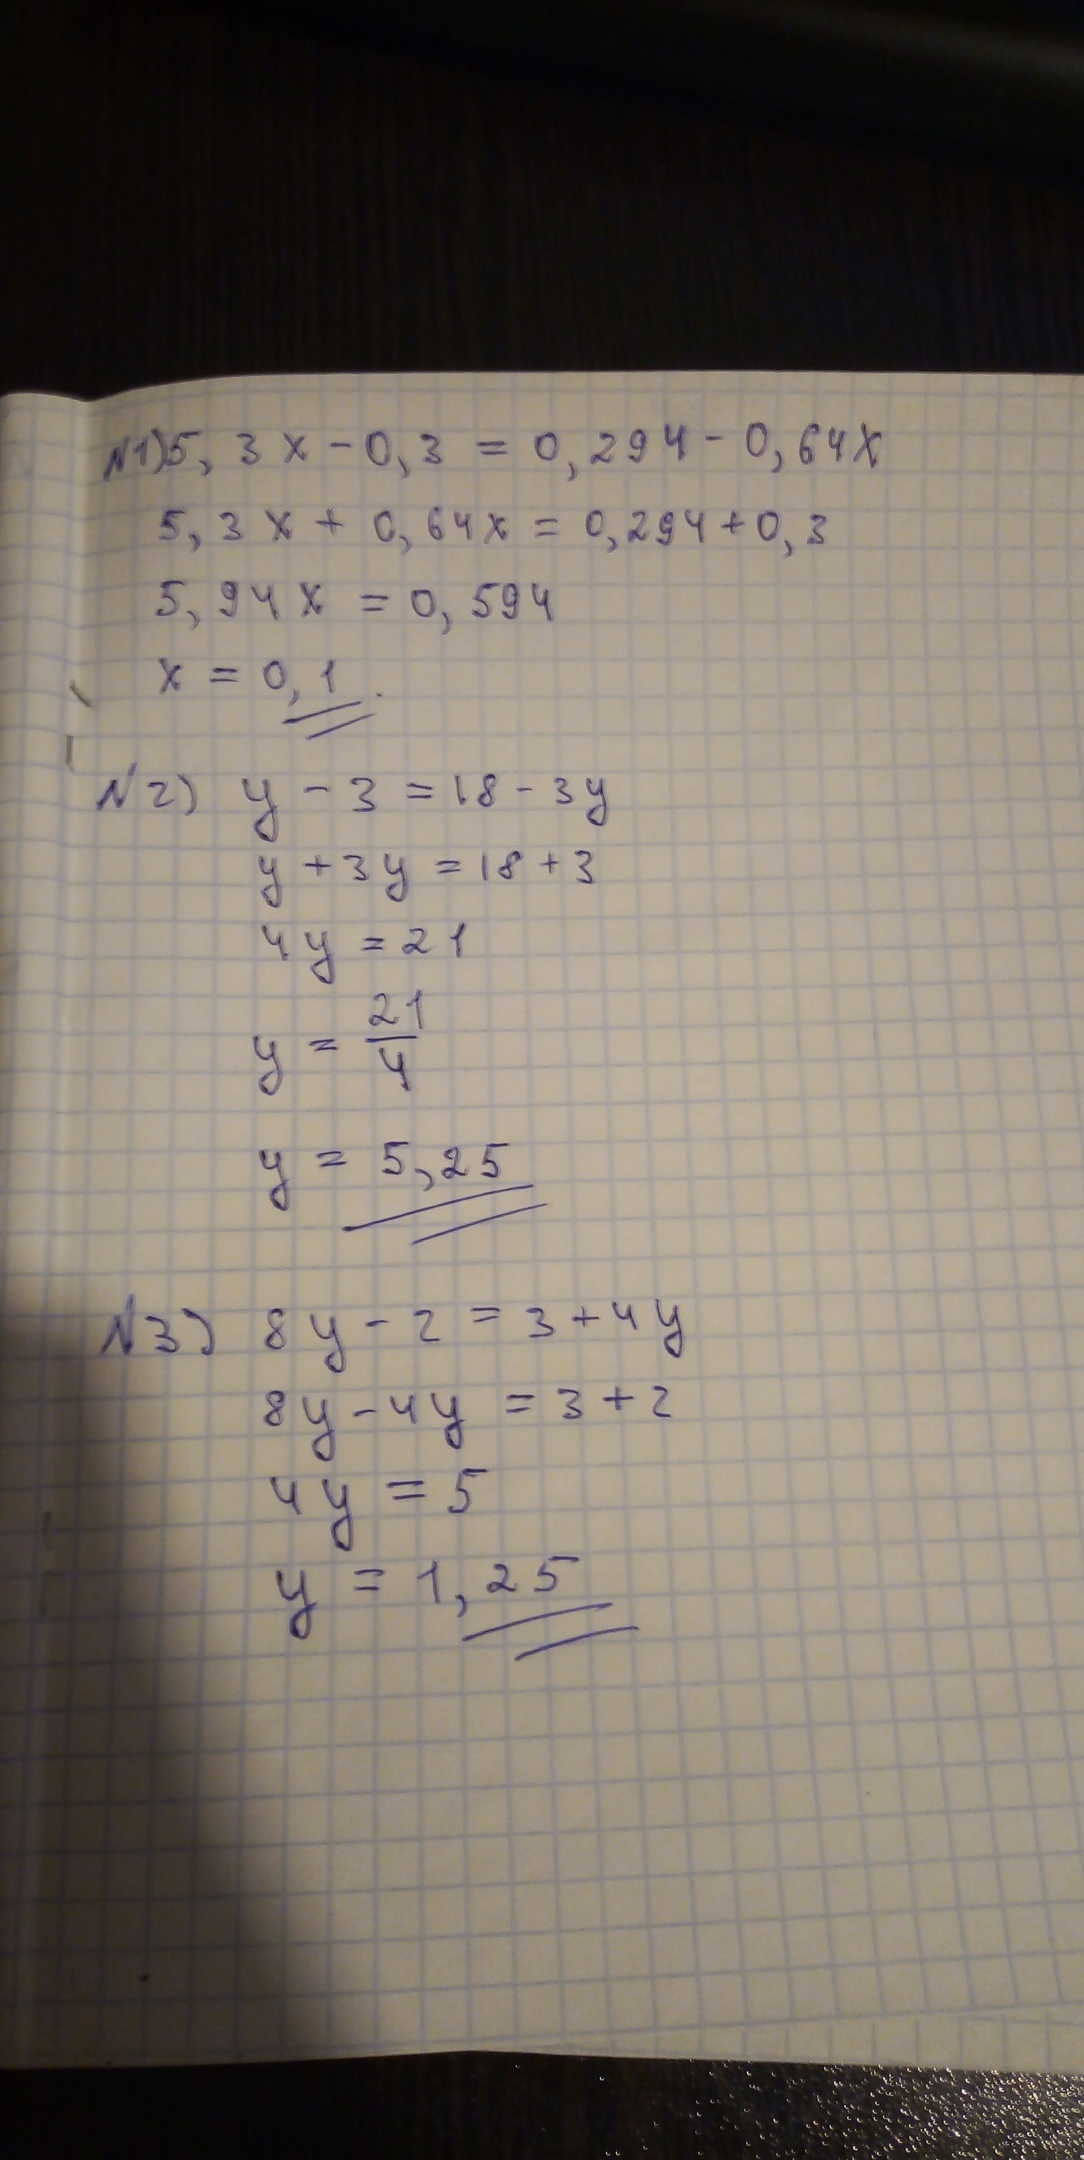 №1) 5,3x - 0,3 = 0,294 - 0,64x
5,3x + 0,64x = 0,294 + 0,3
5,94x = 0,594
x = 0,1.
№2) y - 3 = 18 - 3y
y + 3y = 18 + 3
4y = 21
y = 21/4
y = 5,25
№3) 8y - 2 = 3 + 4y
8y - 4y = 3 + 2
4y = 5
y = 1,25